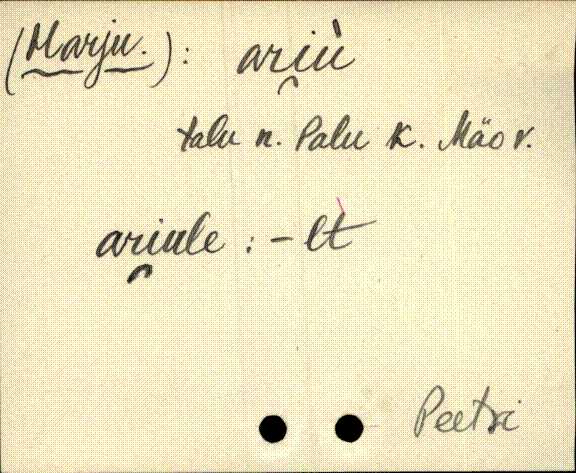 (Marju.): ari̯ù
talu n. Palu k. Mäo v.
ari̯ule : - lt
Peetri